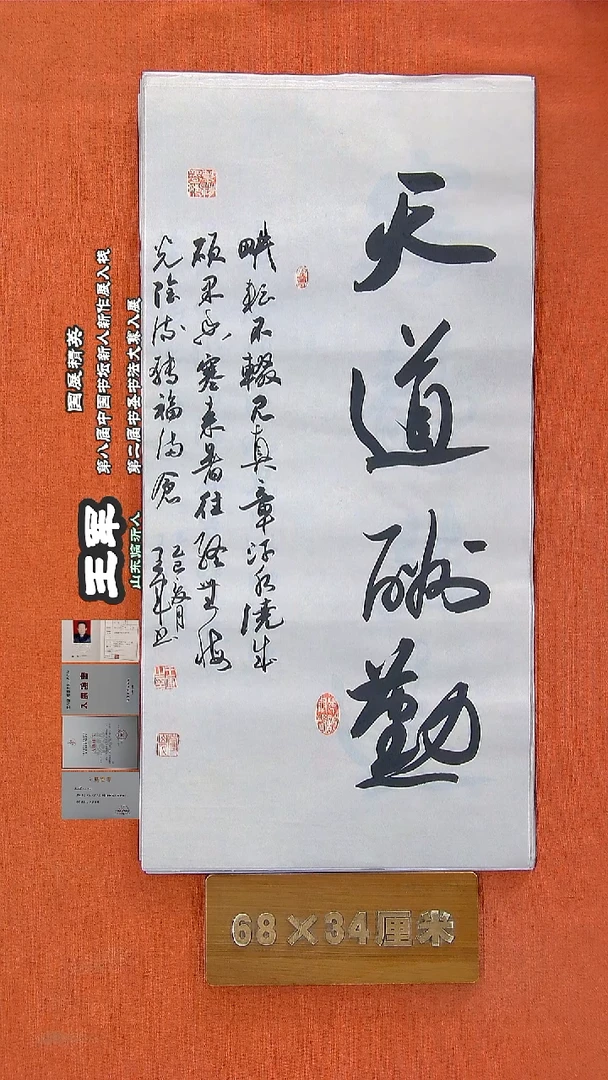 天道酬勤
畊耘不輟见真章汗水澆成
碩果香寒来暑往終無悔
光陰流轉福满倉
乙巳夏月
王军书
国展精英
第八届中国书坛新人新作展入视
第二届书圣书法大赛入展
王军
山东临沂人
68×34厘米